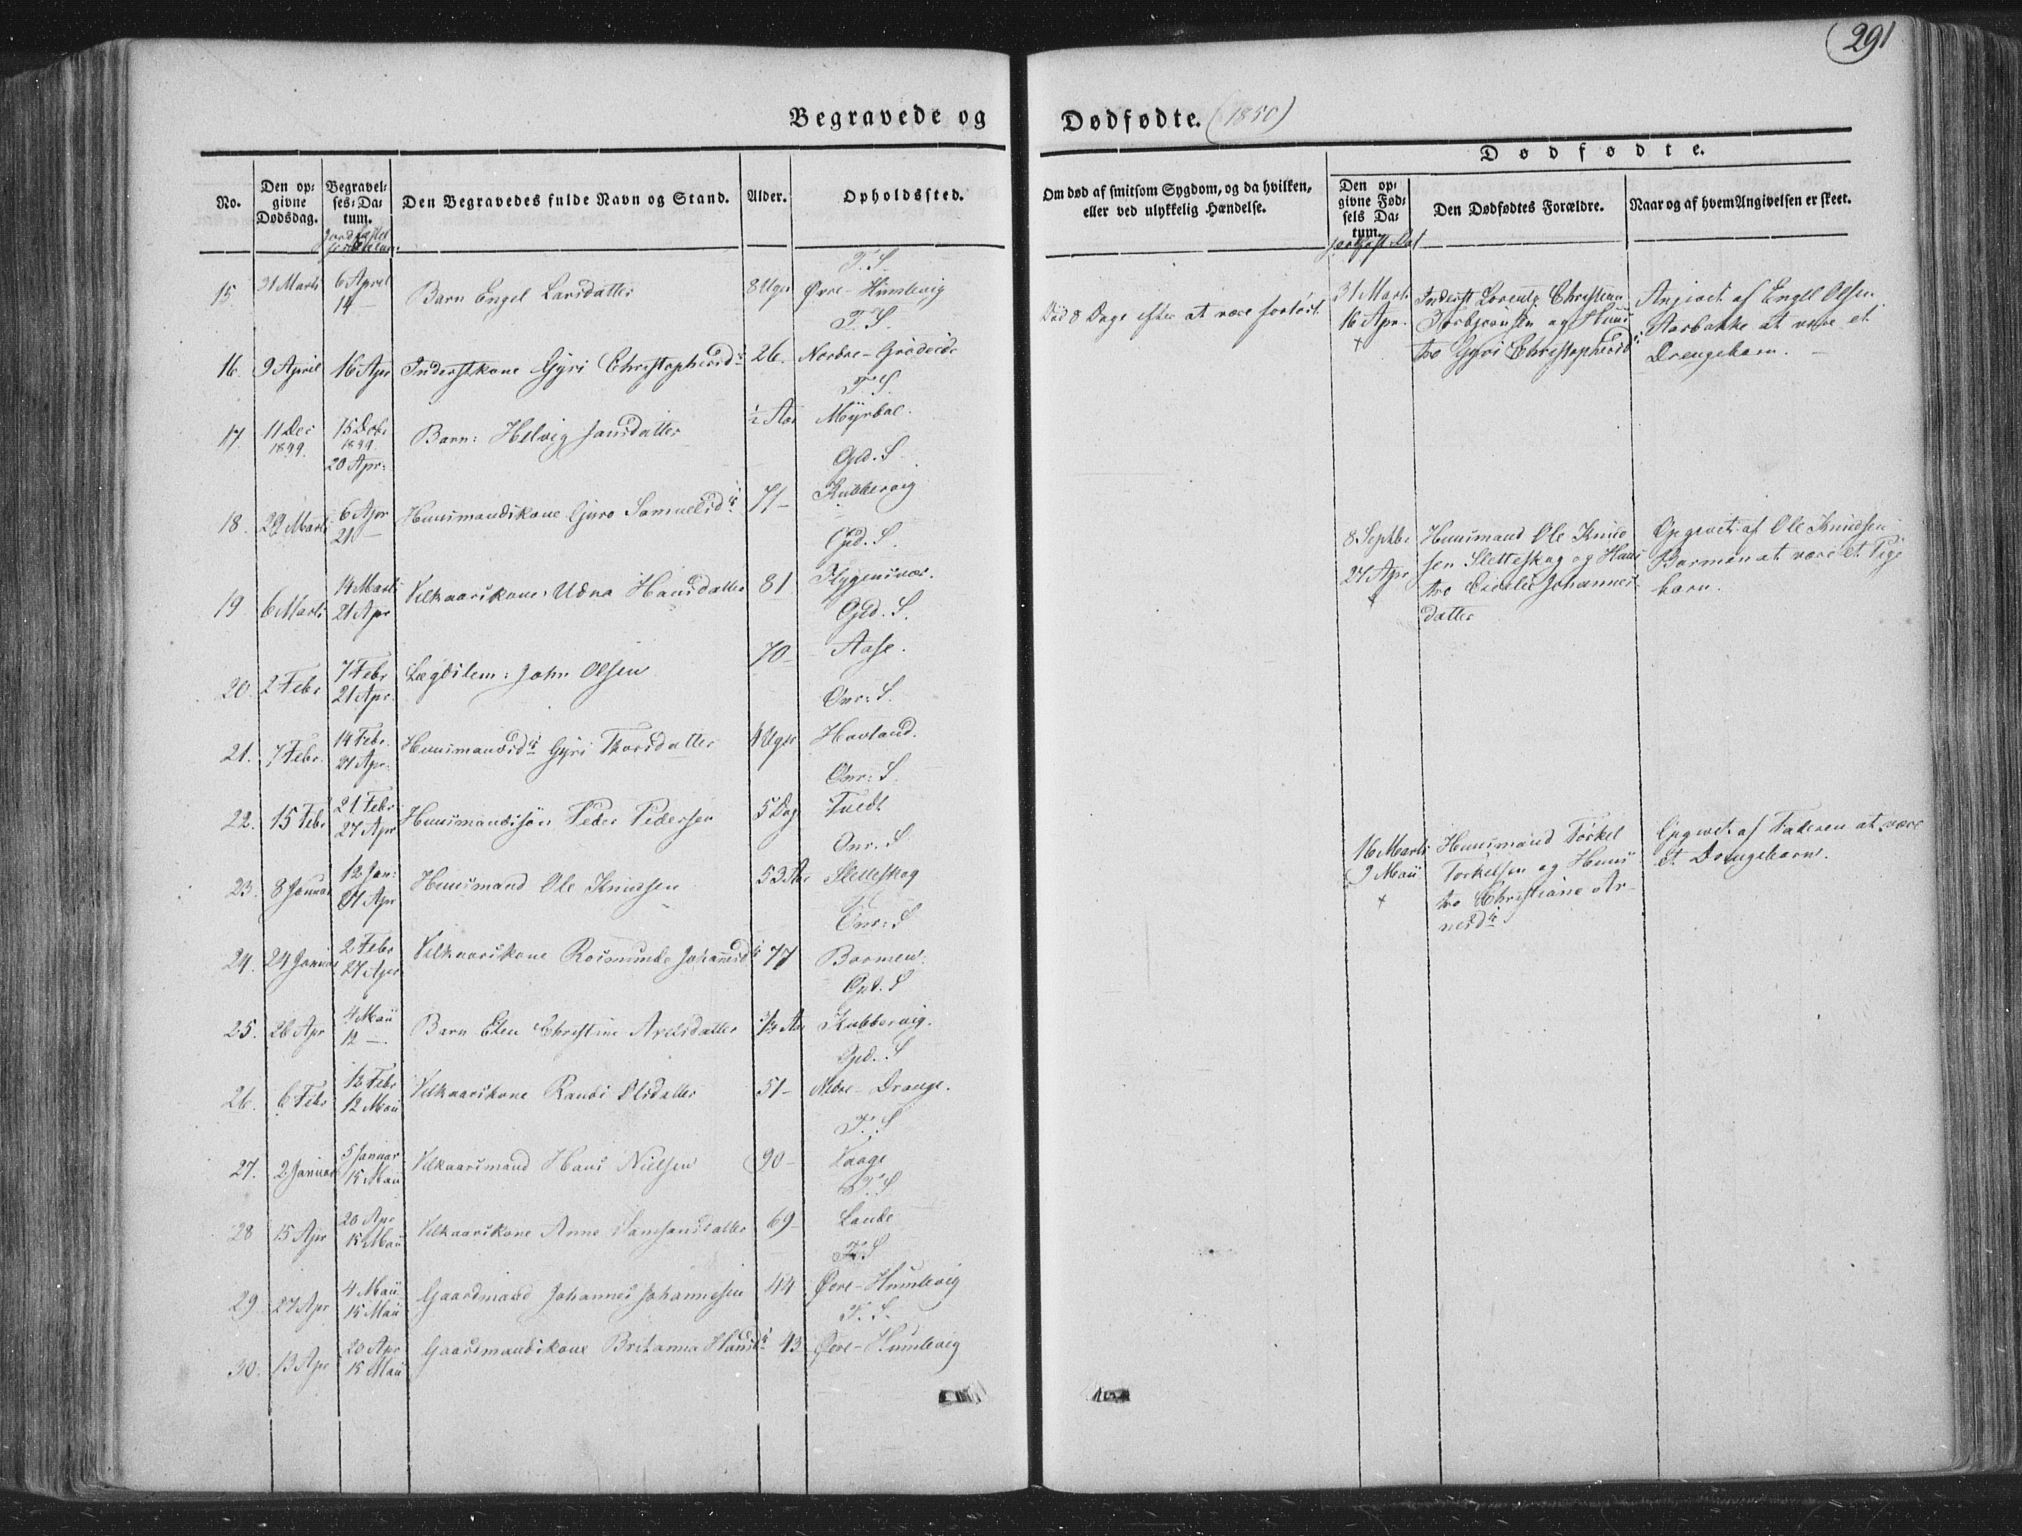 291
Begravede og Dødfødte. (1850)
No.
Den opgivne Dødsdag.
Begravelses-Datum.
Den Begravedes fulde Navn og Stand.
Alder.
Opholdssted.
Om død af smitsom Sygdom, og da hvilken, eller ved ulykkelig Hændelse.
Dødfødte.
Den opgivne Fødsels Datum.
Den Dødfødtes Forældre.
Naar og af hvem Angivelsen er skeet.
F. S.
15. 31 Marts 6 April 14 — Barn Engel Larsdatter 8 Uger Øvre-Humlevig
F. S.
16. 9 April 16 Apr Inderstkone Gyri Christophersd. 26. Nordre-
F. S.
17. 11 Dec 1849. 15 Decbr 1849. 20 Apr: Barn: Helvig Jansdatter ½ Aar Myrbø.
Gld. S.
18. 29 Marts 6 Apr 21 — Huusmandskone Guro Samuelsdr 71 — Kubbervig
Gld. S.
19. 6 Marts 14 Marts 21 Apr Vilkaarskone Udna Hansdatter 81 Flygensvær.
Gld. S.
20. 2 Febr 7 Febr 21 Apr. Lægdslem: John Olsen 70 — Aase.
Onr: S.
21. 7 Febr. 14 Febr. 27 Apr. Huusmandsdr Gyri Thorsdatter Uger Hovland.
Onr: S.
22. 15 Febr 21 Febr 27 Apr Huusmandssøn Peder Pedersen 5 Dag Tvedt
Onr. S
23. 8 Januar 12 Jan: 27 Apr Huusmand Ole Knudsen 53 Aar Sletteskog
Onr: S
24. 24 Januar 2 Febr 27 Apr Vilkaarskone Rosmunde Johannesdr 77 Barmen.
Gld. S
25. 26 Apr 4 Maii 12 —. Barn Elen Christine Axelsdatter Aar Kubbervig.
Gld. S
26. 6 Febr 12 Febr 12 Maii Vilkaarskone Randi Olsdatter 51 — Nedre-Drange.
F. S
27. 2 Januar 5 Januar 15 Maii Vilkaarsmand Hans Nielsen 90 — Vaage
F. S
28 15 Apr 20 Apr 15 Maii Vilkaarskone Anne Samsonsdatter 69 — Lande
F. S
29. 27 Apr 4 Maii 15 Maii Gaardmand Johannes Johannesen 44 Øvre-Humlevig
F. S.
30. 13 Apr 20 Apr 15 Maii Gaardmandskone Britanna Hansdr 43 Øvre-Humlevig
Død 8 Dage efter at være forløst.
31 Marts 16 Apr. +
Inderst Lorentz Christian
Torbjørnsen og Huus
tro Gyri Christophersdr
Angivet af Engel Olsen
Aarbakke at være et
Drengebarn. —
8 Septbr 27 Apr +
Huusmand Ole Knud
sen Sletteskog og Huus
tro Johannes
datter
Opgivet af Ole Knudsen
Barmen at være et Pige
barn.
16 Marts 9 Maii +
Huusmand Torkel
Torkelsen og Huus
tro Christiane Ar-
nesdr
Opgivet af Faderen at være
et Drengebarn.